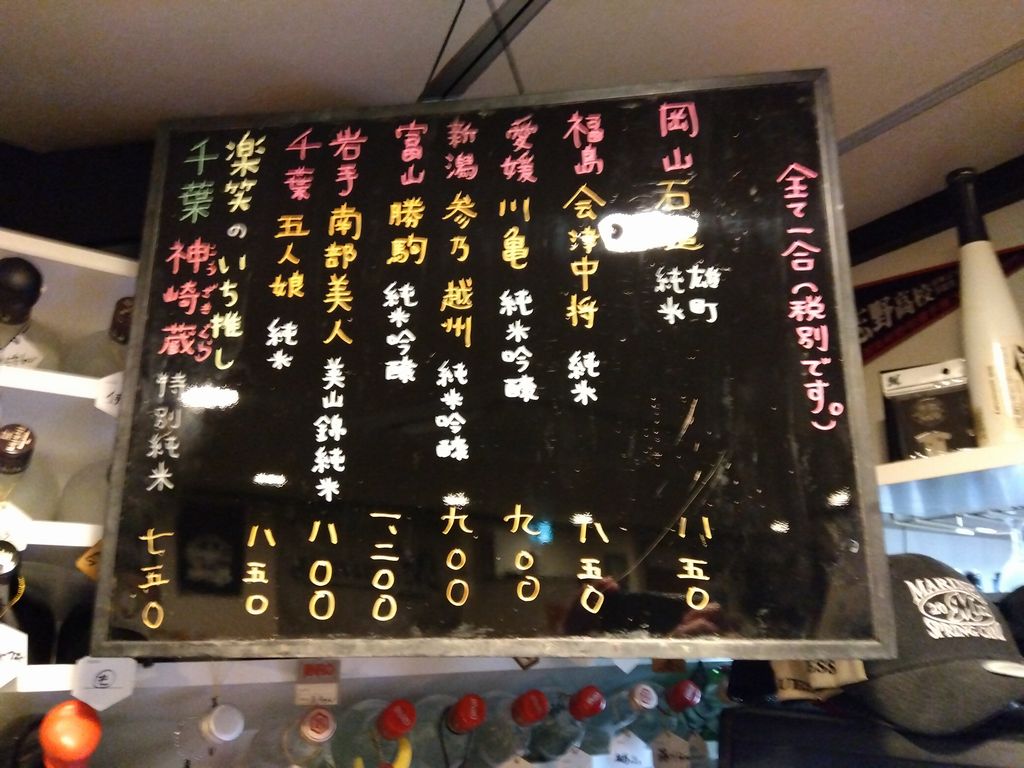 全て一合(税別です。)
岡山 石 雄町 純米 八五〇
福島 会津中将 純米 八五〇
愛媛 川亀 純米吟醸 九〇〇
新潟 参乃越州 純米吟醸 九〇〇
富山 勝駒 純米吟醸 一、二〇〇
岩手 南部美人 美山錦純米 八〇〇
千葉 五人娘 純米 八五〇
楽笑のいち推し
千葉 神崎蔵 こうざきくら 特別純米 七五〇
野高校
MARINES
SPRING